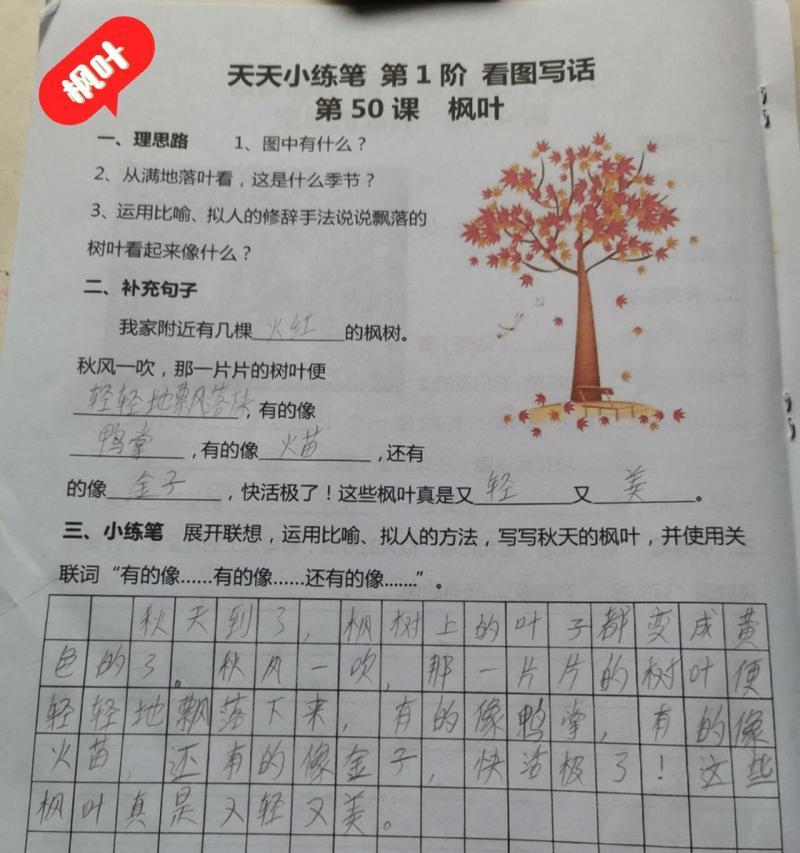 枫叶
天天小练笔 第1阶 看图写话
第50课 枫叶
一、理思路 1、图中有什么？
2、从满地落叶看，这是什么季节？
3、运用比喻、拟人的修辞手法说说飘落的
树叶看起来像什么？
二、补充句子
我家附近有几棵火红的枫树。
秋风一吹，那一片片的树叶便
轻轻地飘落，有的像
鸭掌，有的像火苗，还有
的像金子，快活极了！这些枫叶真是又轻又美。
三、小练笔 展开联想，运用比喻、拟人的方法，写写秋天的枫叶，并使用关
联词“有的像……有的像……还有的像……”。
秋天到了，枫树上的叶子都变成黄
色的了。秋风一吹，那一片片的树叶便
轻轻地飘落下来，有的像鸭掌，有的像
火苗，还有的像金子，快活极了！这些
枫叶真是又轻又美。